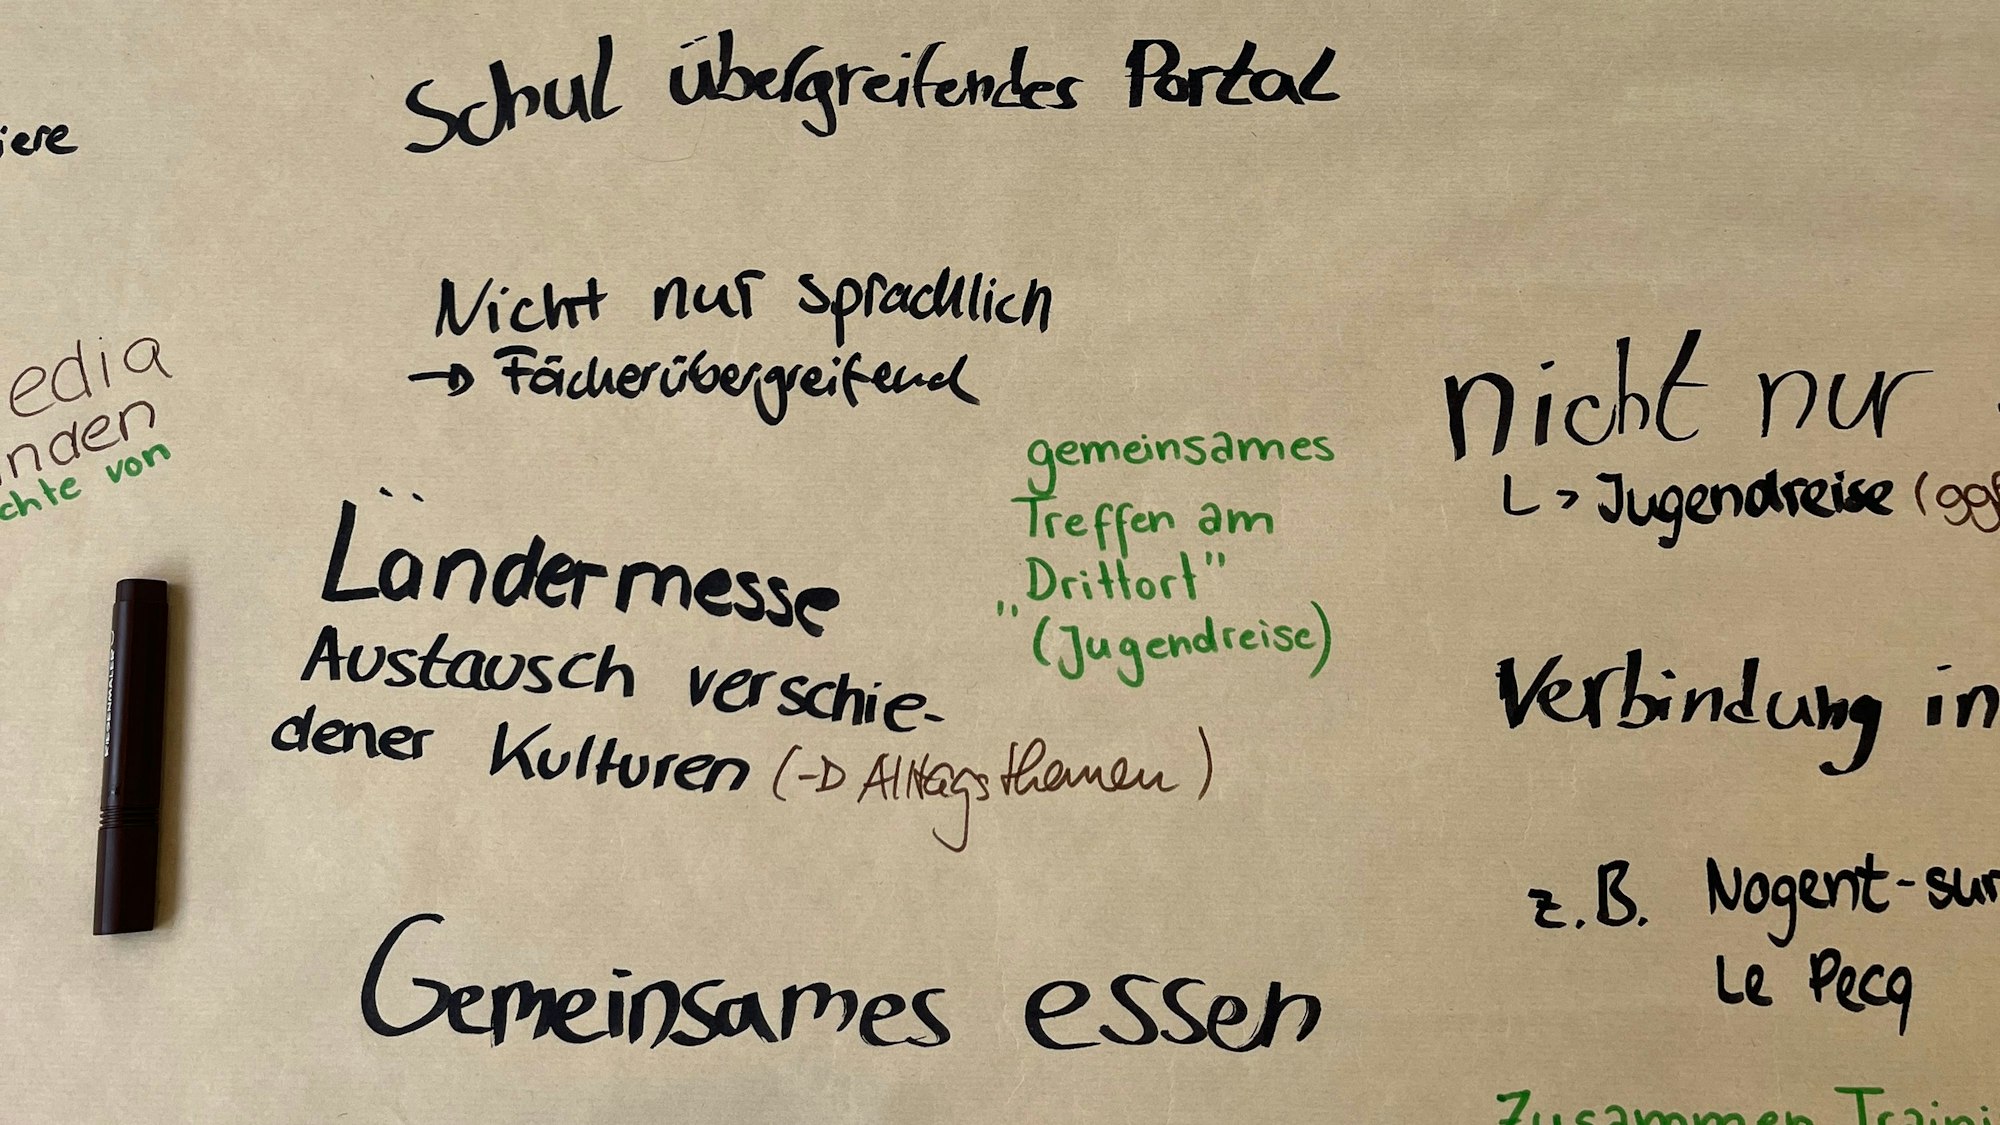 Schul übergreifendes Portal
iere
Nicht nur sprachlich
→ Fächerübergreifend
edia
nden
chte von
gemeinsames
Treffen am
"Drittort"
(Jugendreise)
nicht nur
L> Jugendreise (ggf
Ländermesse
Austausch verschie-
dener Kulturen (→ Alltagsthemen)
Verbindung in
z.B. Nogent-sur
Le Pecq
Gemeinsames essen
Zusammen Traini